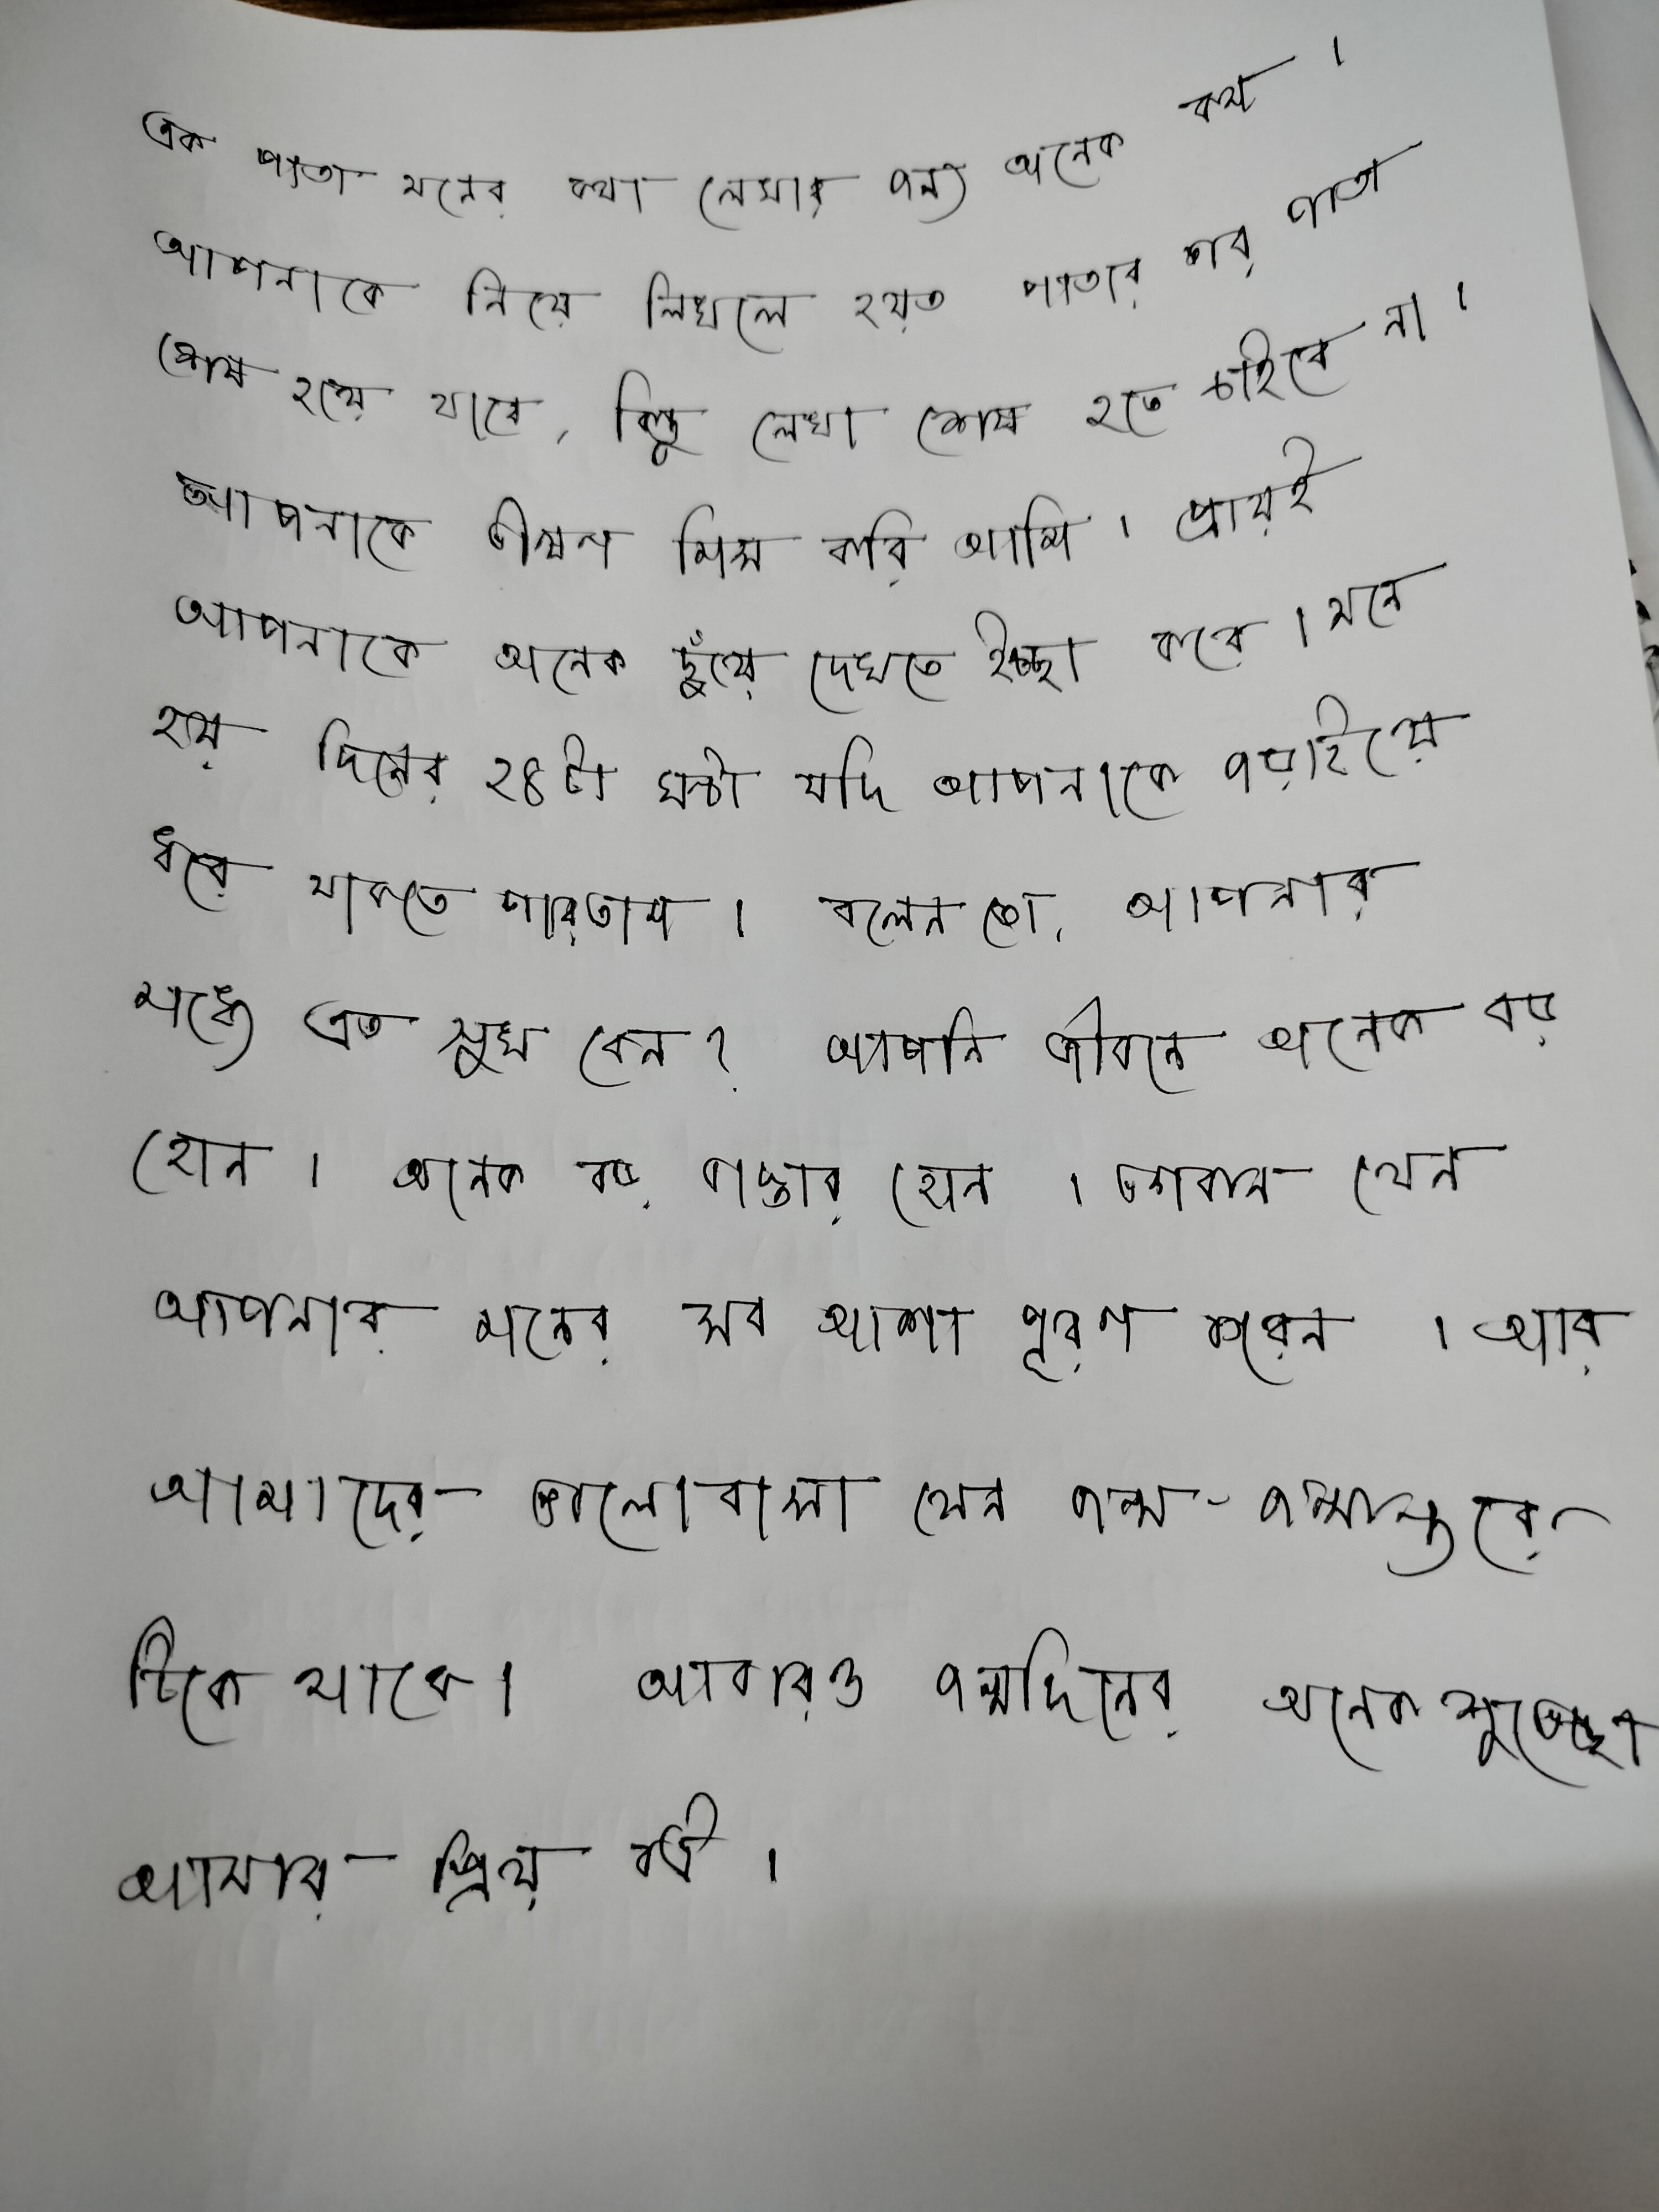 এক পাতা মনের কথা লেখার জন্য অনেক কম ।
আপনাকে নিয়ে লিখলে হয়ত পাতার পর পাতা
শেষ হয়ে যাবে, কিন্তু লেখা শেষ হতে চাইবে না ।
আপনাকে ভীষণ মিস করি আমি । প্রায়ই
আপনাকে অনেক ছুঁয়ে দেখতে ইচ্ছা করে । মনে
হয় দিনের ২৪টা ঘন্টা যদি আপনাকে জড়াইয়ে
ধরে থাকতে পারতাম । বলেন তো, আপনার
মধ্যে এত সুখ কেন ? আপনি জীবনে অনেক বড়
হোন । অনেক বড় ডাক্তার হোন । ভগবান যেন
আপনার মনের সব আশা পূরণ করেন । আর
আমাদের ভালোবাসা যেন জন্ম-জন্মান্তরে
টিকে থাকে । আবারও জন্মদিনের অনেক শুভেচ্ছা
আমার প্রিয়